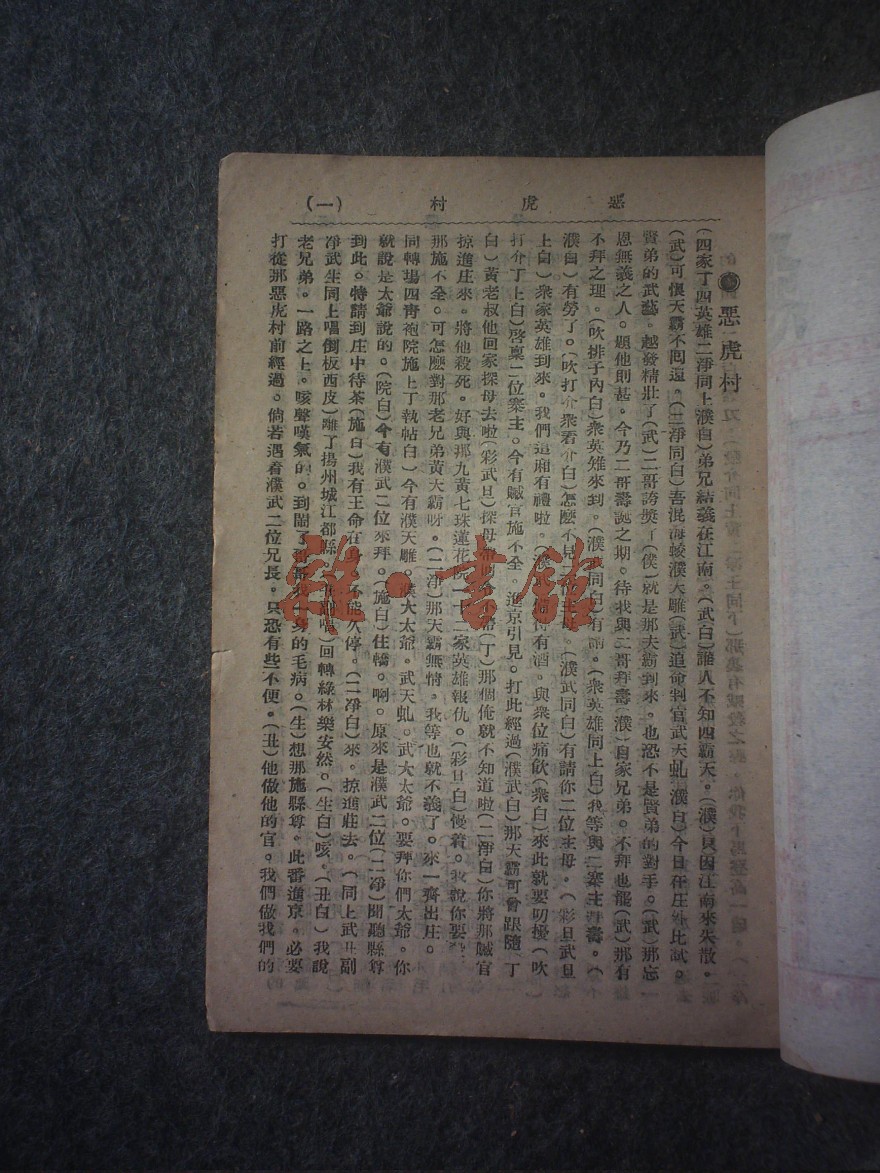 惡虎村 (一)
惡虎村
(四家丁四英雄二淨同上濮白)弟兄結義在江南。(武白)誰人不知四霸天。(濮)只因江南來失散。
(武)可恨天霸不囘還。(二淨同白)吾混海蛟濮天雕(武)追命判官武天虬(濮白)今日在庄外比試。
賢弟的武藝。越發精壯了(武)二哥誇奬了(濮)就是那天霸到來。也恐不是賢弟的對手。(武)那忘
恩無義之人。題他則甚。今乃二哥壽誕之期。待我與二哥拜壽(濮)自家兄弟。不拜也罷(武)那有
不拜之理。(吹排子內白)衆英雄來到。(濮武同白)有請。(衆英雄同上白)我等與二寨主拜壽。(
濮白)有勞了。(吹打介衆看介白)怎麼不見二位主母。(濮武同白)有請你二位主母。(彩旦武旦
上白)衆家英雄到來。我們這廂有禮啦。(濮武白)備得有酒。與衆位痛飲(衆白)來此就要叨擾(吹
打介丁上白)啓稟二位寨主。今有贓官施不全。進京引見。打此經過(濮武白)那天霸可曾跟隨(丁
白)黃老叔他回家探母去啦(彩武旦)探母(丁)那個俺就不知道啦(二淨白)你將那贓官
掠進庄來。將他殺死。好與那九黃七珠蓮花院一十二家英雄報仇。(彩旦白)慢着。我說你要
那施不全。可怎麼對那老兄弟黃天霸呀。(二淨)那天霸無情。我等也就不義了。來一齊出庄。
同轉塲四靑袍院施上丁執帖白)今有濮天雕。濮大太爺。武天虬。武大太爺。要拜你們太爺。你
就說是太爺說的。(院白)今有濮武二位來拜。(施白)住轎。啊。原來是濮武二位(二淨)聞聽縣尊
到此。特請到庄中待茶(施白)我有王命在身。不能久停。(二淨白)來。掠進莊去。(同上武丑副
淨武生同上唱倒板西皮)離了揚州城江都縣。(唱)回轉綠林樂安然。(生白)咳。(丑白)我說
老兄弟。一路之上。咳聲嘆氣的。到閙了哥哥我一身的毛病。(生)想那施縣尊。此番進京。必要
打從那惡虎村前經過。倘若遇着濮武二位兄長。只恐有些不便。(丑)他做他的官。我們做我們的
雜·書館